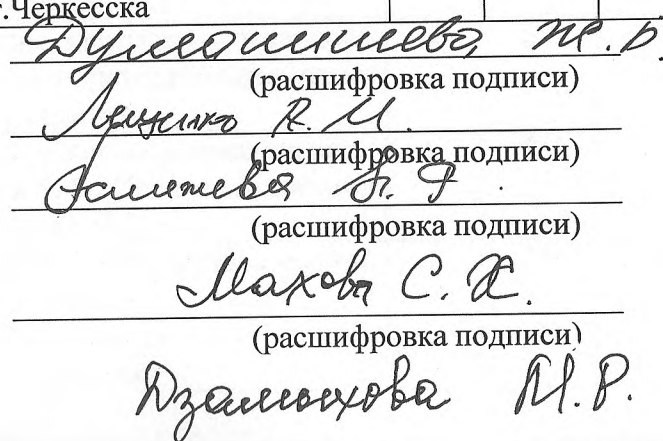 г.Черкесска
Думанишева Ж.Р.
(расшифровка подписи)
Лещенко А.И.
(расшифровка подписи)
(расшифровка подписи)
Махова С. Х.
(расшифровка подписи)
Дзамыхова М.Р.